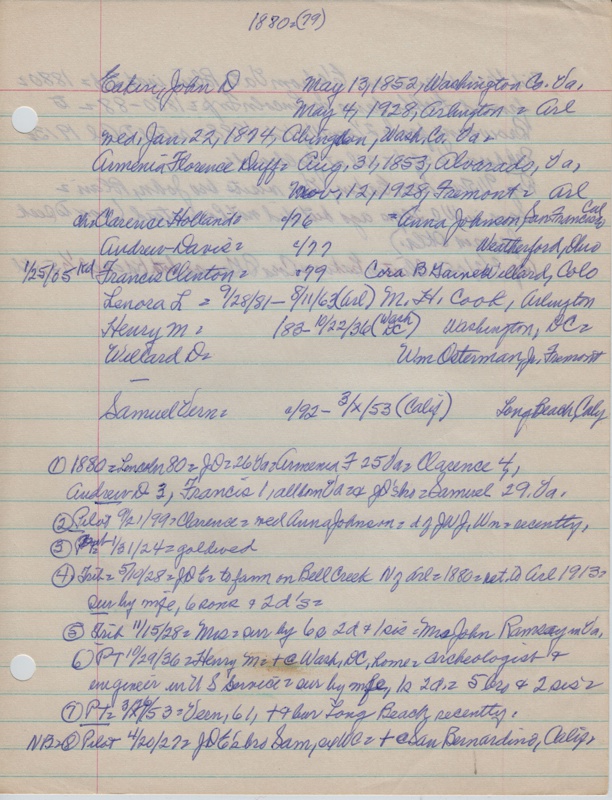 1880=(79)
Eaken, John D May 13, 1852, Washington Co. Va.
May 4, 1928, Arlington = Arl
med, Jan. 22, 1874, Abingdon, Wash. Co. Va=
Armenia Florence Duff= Aug, 31, 1853, Alvarado, Va,
Nov, 12, 1928, Fremont = Arl
Clarence Holland= c/76 =Anna Johnson San Francisco Cal
Andrew Davis= c/77 Weatherford, Ohio
1/25/05 Francis Clinton= c/79 Cora B. Gaines Willard, Colo
Lenora L = 9/28/81 - 8/11/62 (Arl) M. H. Cook, Arlington
Henry M= 1883-10/22/36 (Wash DC) Washington, DC=
Willard D= Wm Osterman, Jr. Fremont
—
Samuel Vern= c/92 - 3/x/53 (Calif) Long Beach, Calif
① 1880=Lincoln 80=JD=26 Va=Armenia F 25 Va= Clarence 4,
Andrew D 3, Francis 1, all born Va=x JD's bro = Samuel 29, Va.
② Pilot 9/21/99=Clarence= med Anna Johnson = d of JWJ, Wm= recently,
③ 1/31/24=gold wed
④ Trib= 5/10/28=JDE= to farm on Bell Creek N of Arl=1880=ret. to Arl 1913=
sur by wife, 6 sons + 2 d's=
⑤ Trib 11/15/28= Mrs = sur by 6s 2d + 1 sis= Mrs John Ramsey in Va,
⑥ PT 10/29/36=Henry M=+c Wash, DC, home= archeologist +
engineer in US Service= sur by wife, 1s 2d = 5 bro + 2 sis=
⑦ PT= 53=Vern, 61, + + bur Long Beach, recently.
NB=⑧ Pilot 4/20/27=JDE's bro Sam, = +c San Bernardino, Calif.